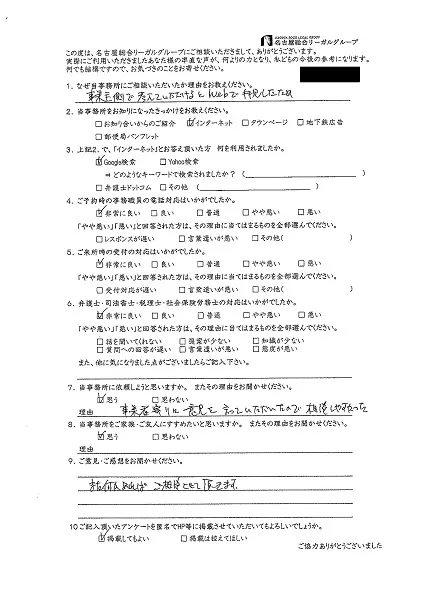 NAGOYA SOGO LEGAL GROUP
名古屋総合リーガルグループ
この度は、名古屋総合リーガルグループにご相談いただきまして、ありがとうございます。
実際にご利用いただきましたあなた様の率直な声が、何よりの力となり、私どもの今後の参考になります。
何でも結構ですので、お気づきのことをお寄せください。
1. なぜ当事務所にご相談いただいたか理由をお教えください。
事業主側で考えていただけるとWebで拝見したため
2. 当事務所をお知りになったきっかけをお教えください。
□お知り合いからのご紹介 ☑インターネット □タウンページ □地下鉄広告
□郵便局パンフレット
3. 上記2. で、「インターネット」とお答え頂いた方 何を利用されましたか。
☑Google検索 □Yahoo検索
⇒ どのようなキーワードで検索されましたか？( )
□弁護士ドットコム □その他 ( )
4. ご予約時の事務職員の電話対応はいかがでしたか。
☑非常に良い □良い □普通 □やや悪い □悪い
「やや悪い」「悪い」と回答された方は、その理由に当てはまるものを全部選んでください。
□レスポンスが遅い □言葉遣いが悪い □その他( )
5. ご来所時の受付の対応はいかがでしたか。
☑非常に良い □良い □普通 □やや悪い □悪い
「やや悪い」「悪い」と回答された方は、その理由に当てはまるものを全部選んでください。
□受付対応が遅い □言葉遣いが悪い □その他( )
6. 弁護士・司法書士・税理士・社会保険労務士の対応はいかがでしたか。
☑非常に良い □良い □普通 □やや悪い □悪い
「やや悪い」「悪い」と回答された方は、その理由に当てはまるものを全部選んでください。
□話を聞いてくれない □提案が少ない □知識が少ない
□質問への回答が遅い □言葉遣いが悪い □態度が悪い
また、他に気になりました点がございましたらご記入下さい。
7. 当事務所に依頼しようと思いますか。 またその理由をお聞かせください。
☑思う □思わない
理由 事業者寄りに意見を言っていただいたので 相談しやすかった
8. 当事務所をご家族・ご友人にすすめたいと思いますか。 またその理由をお聞かせください。
☑思う □思わない
理由
9. ご意見・ご感想をお聞かせください。
ご相談させて頂きます。
10 ご記入頂いたアンケートを匿名でHP等に掲載させていただいてもよろしいでしょうか。
☑掲載してもよい □掲載は控えてほしい
ご協力ありがとうございました